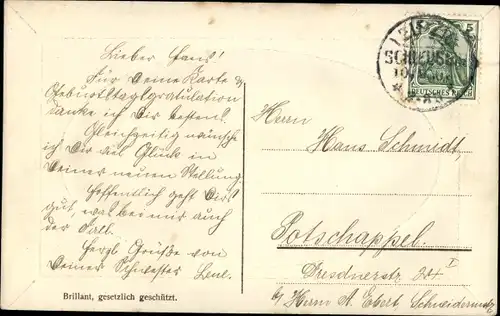 Lieber Hans!
Für Deine Karte &
Geburtstagsgratulation
danke ich Dir bestens!
Gleichzeitig wünsche
ich Dir viel Glück in
Deiner neuen Stellung.
Hoffentlich geht Dir's
gut, was bei mir auch
der Fall.
Herzl. Grüße von
Deiner Schwester Lene.
Brillant, gesetzlich geschützt.
5
DEUTSCHES REICH
Herrn
Hans Schmidt,
Potschappel.
Dresdnerstr. 24 I
b/ Herrn A. Ebert, Schneidermstr.